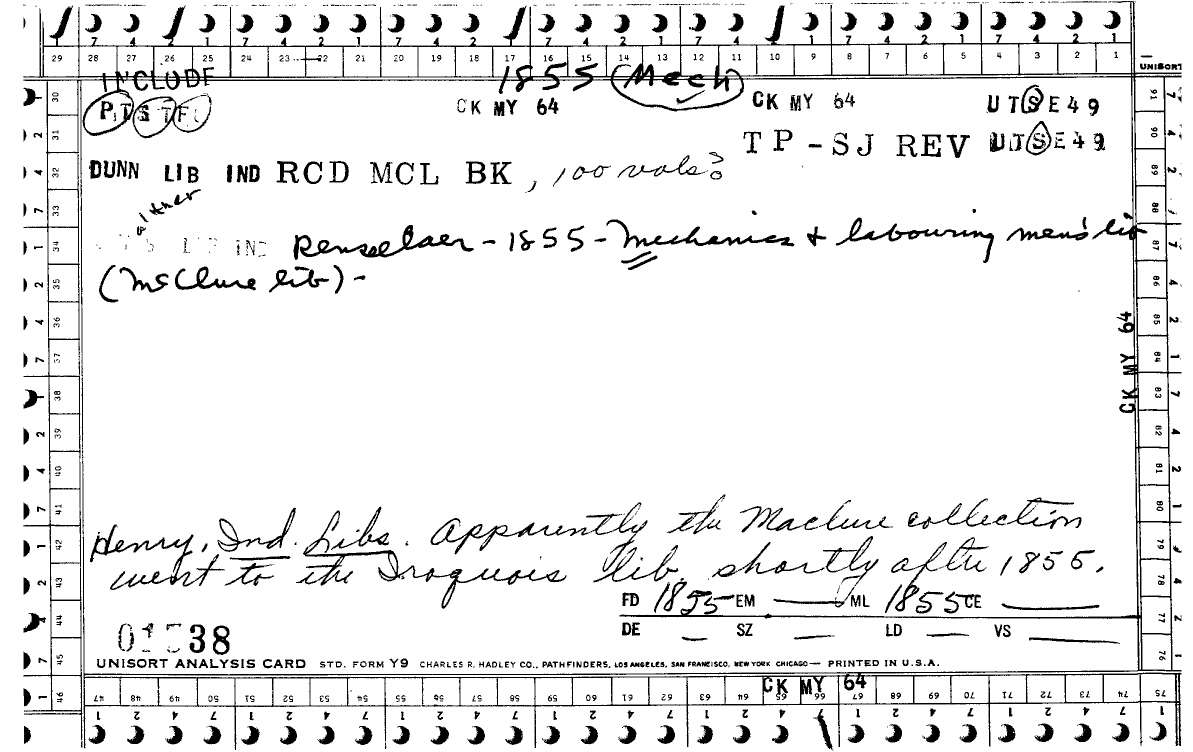 7 4 2 1 7 4 2 1 7 4 2 1 7 4 2 1 7 4 2 1 7 4 2 1
29 28 27 26 25 24 23 22 21 20 19 18 17 16 15 14 13 12 11 10 9 8 7 6 5 4 3 2 1
UNISORT
INCLUDE 1855 (Mech)
CK MY 64 CK MY 64 UTSE49
TP-SJ REV UTSE49
DUNN LIB IND RCD MCL BK, 100 vols?
LIB IND Rensselaer - 1855 - Mechanics & labouring men's lib
(McClure lib) -
CK MY 64
Henry, Ind. Libs. Apparently the Maclure collection
went to the Iroquois lib. shortly after 1855.
FD 1855 EM ML 1855 CE
DE SZ LD VS
38
UNISORT ANALYSIS CARD STD. FORM Y9 CHARLES R. HADLEY CO., PATHFINDERS, LOS ANGELES, SAN FRANCISCO, NEW YORK CHICAGO — PRINTED IN U.S.A.
CK MY 64
47 48 49 50 51 52 53 54 55 56 57 58 59 60 61 62 63 64 65 66 67 68 69 70 71 72 73 74 75